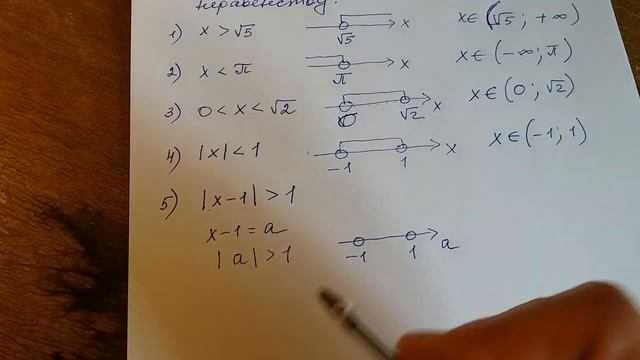 неравенству:
1) x > √5 √5 x x ∈ (√5 ; +∞)
2) x < π π x x ∈ (-∞; π)
3) 0 < x < √2 0 √2 x x ∈ (0 ; √2)
4) |x| < 1 -1 1 x x ∈ (-1; 1)
5) |x-1| > 1
x-1 = a
|a| > 1 -1 1 a